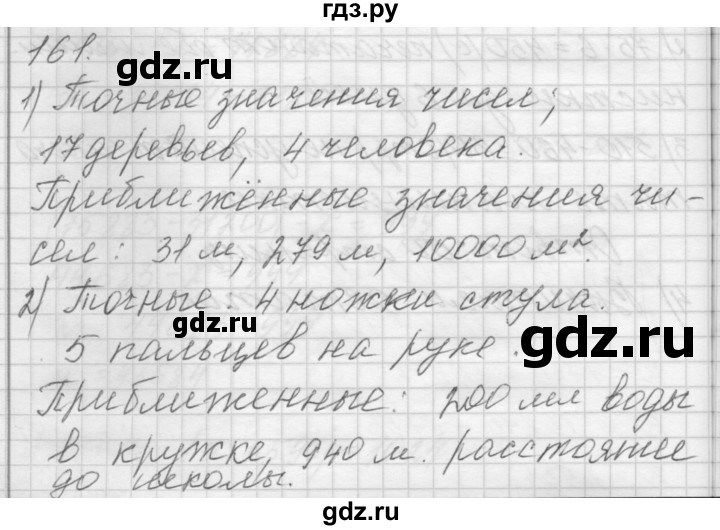 гдз.ру
161.
1) Точные значения чисел;
17 деревьев, 4 человека.
Приближённые значения чи-
сел: 31 м, 279 м, 10000 м².
2) Точные: 4 ножки стула.
gdz.ru
5 пальцев на руке.
gdz.ru
Приближенные: 200 мл воды
в кружке, 940 м. расстояние
до школы.
gdz.ru